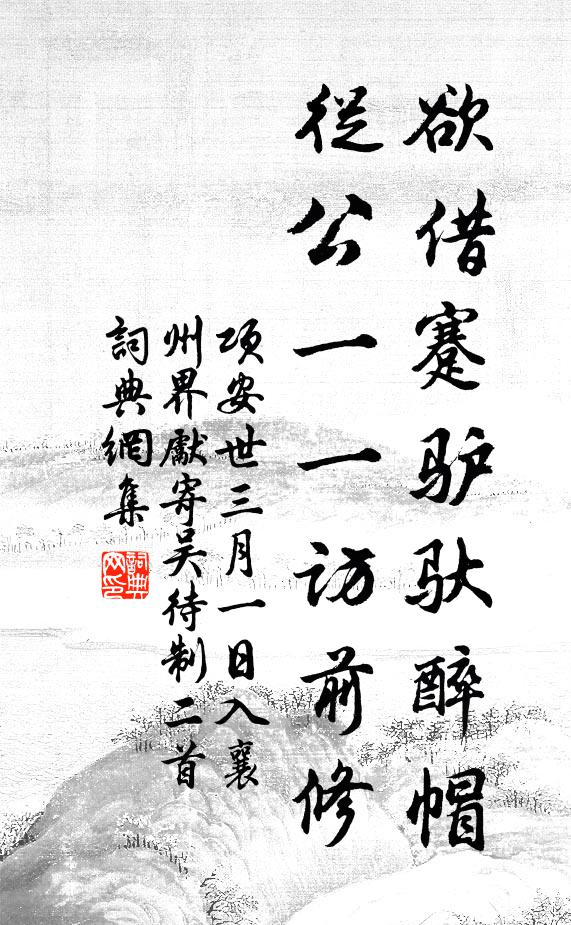 欲借蹇驴驮醉帽
從公一一访前修
項安世三月一日入襄
州界獻寄吴待制二首
詞典網集
詞典网印